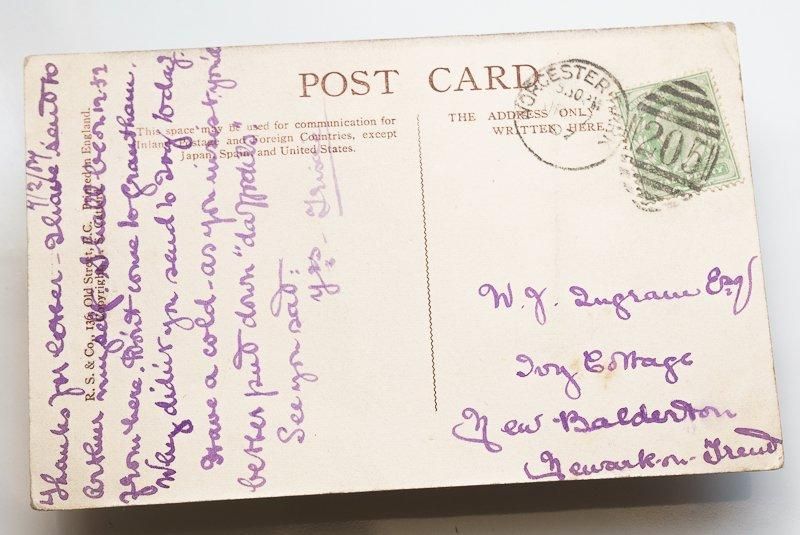 POST CARD
This space may be used for communication for
Inland Postage and Foreign Countries, except
Japan, Spain, and United States.
THE ADDRESS ONLY
WRITTEN HERE.
R. S. & Co., 136, Old Street, E.C. Printed in England.
Copyright.
4/2/07
Thanks for letter - I have sent to
Arthur myself I shall be on 12.52
from here. Don't come to Grantham.
Why didn't you send to Ivy today.
Have a cold - as you insist, you'd
better put down "
See you sat:
yrs -
W. J. Ingram Esq
Ivy Cottage
New Balderton
Newark-on-Trent
WORCESTER
205